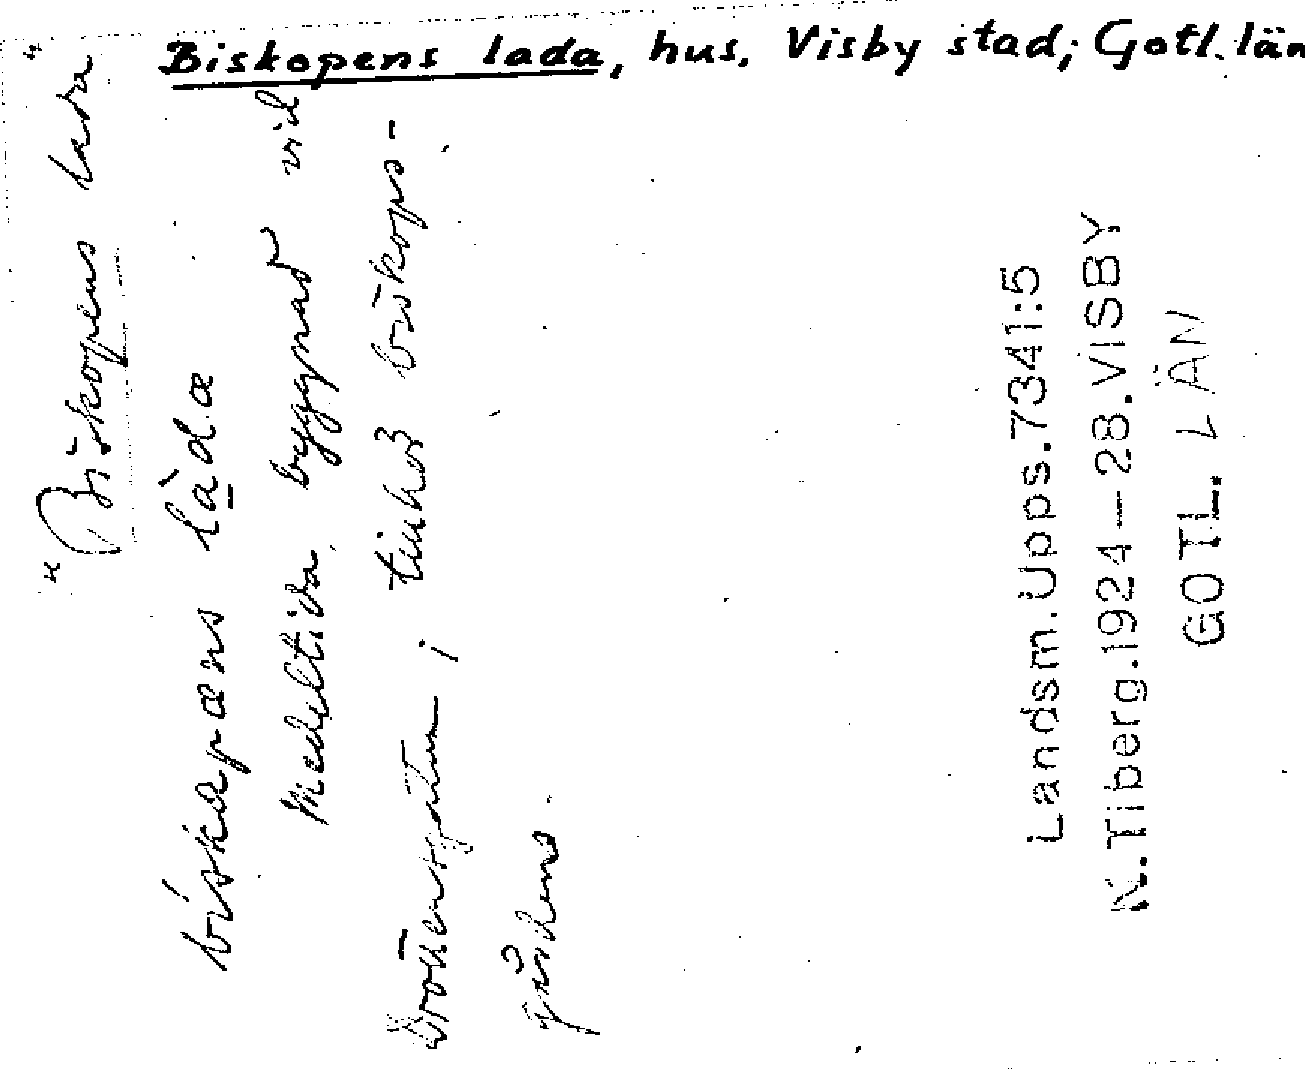 Biskopens lada, hus. Visby stad; Gotl. län
"Biskopens lada"
bískapæns làdæ
Medeltida byggnad vid
Drottensgatan i biskops-
gårdens
Landsm. Upps. 7341:5
N. Tiberg. 1924-28. VISBY
GOTL. LÄN